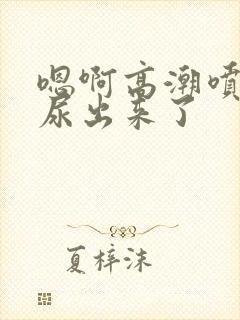 嗯啊高潮喷
尿出来了
夏梓沫